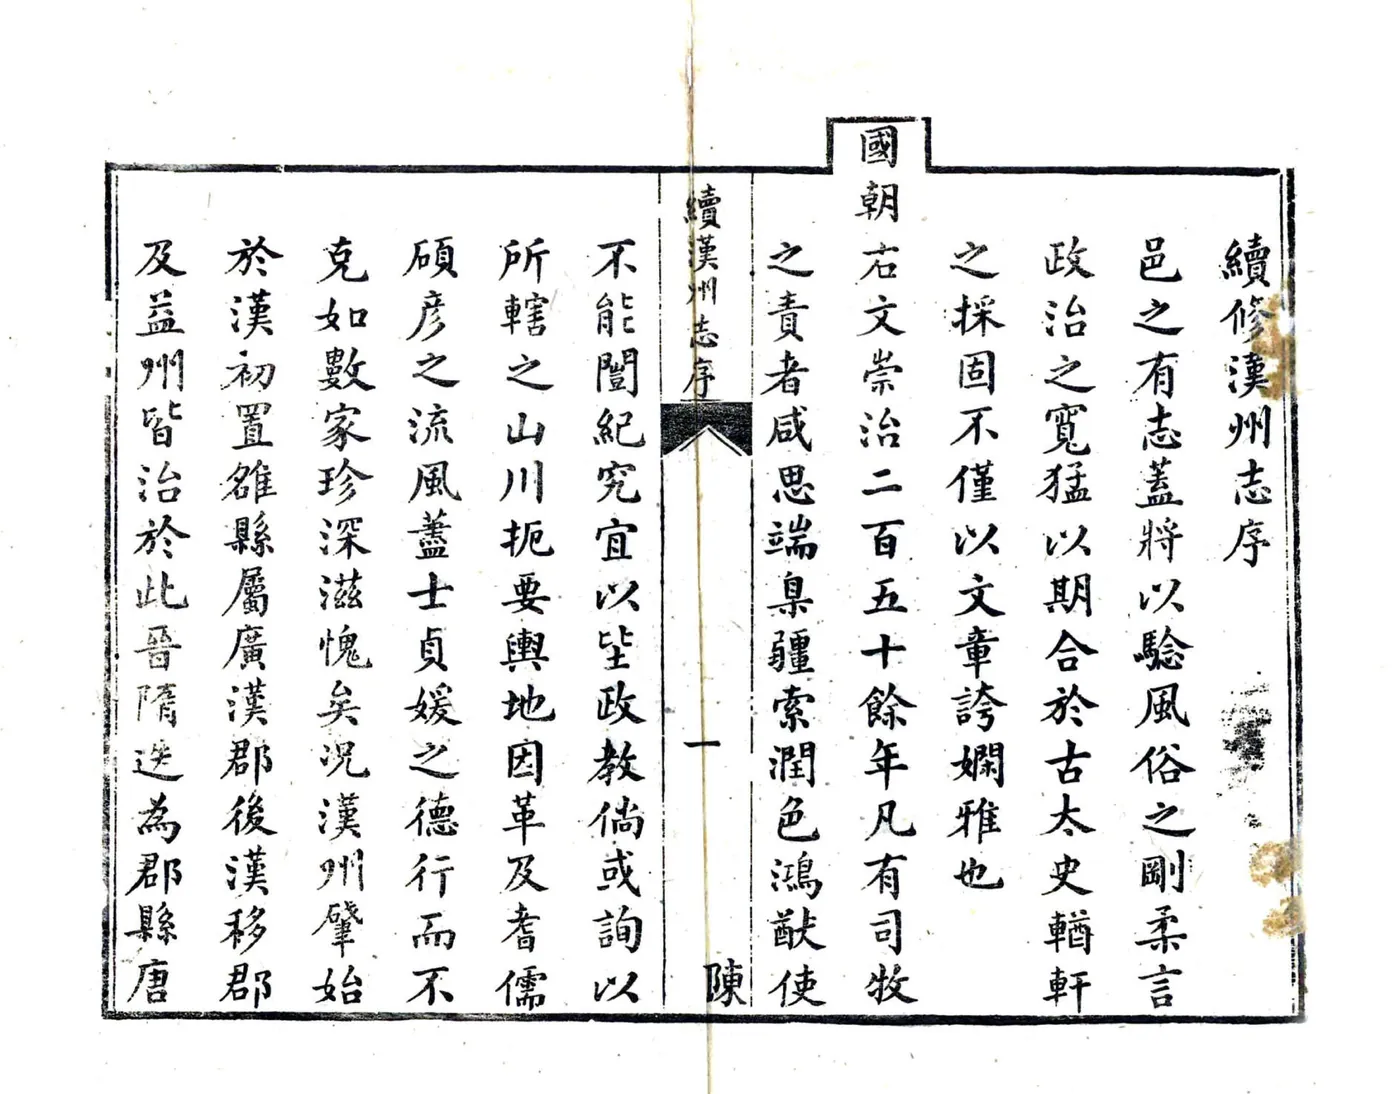 續修漢州志序
邑之有志蓋將以驗風俗之剛柔言
政治之寬猛以期合於古太史輶軒
之採固不僅以文章誇嫻雅也
國朝右文崇治二百五十餘年凡有司牧
之責者咸思端臬疆索潤色鴻猷使
續漢州志序
一
陳
不能闓紀究宜以坒政教倘或詢以
所轄之山川扼要輿地因革及耆儒
碩彥之流風藎士貞媛之德行而不
克如數家珍深滋愧矣況漢州肇始
於漢初置雒縣屬廣漢郡後漢移郡
及益州皆治於此晉隋迭為郡縣唐